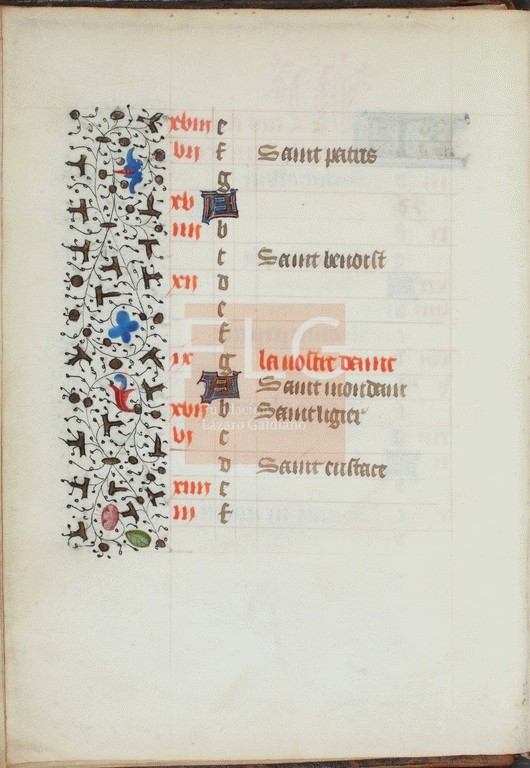 xviii e
vii f Saint patris
g
xv A
iiii b
c Saint benoist
xii d
e
f
ix g la nostre dame
A Saint
xvii b Saint ligier
vi c
d Saint eustace
xiiii e
iii f
FLG
Fundación
Lázaro Galdiano